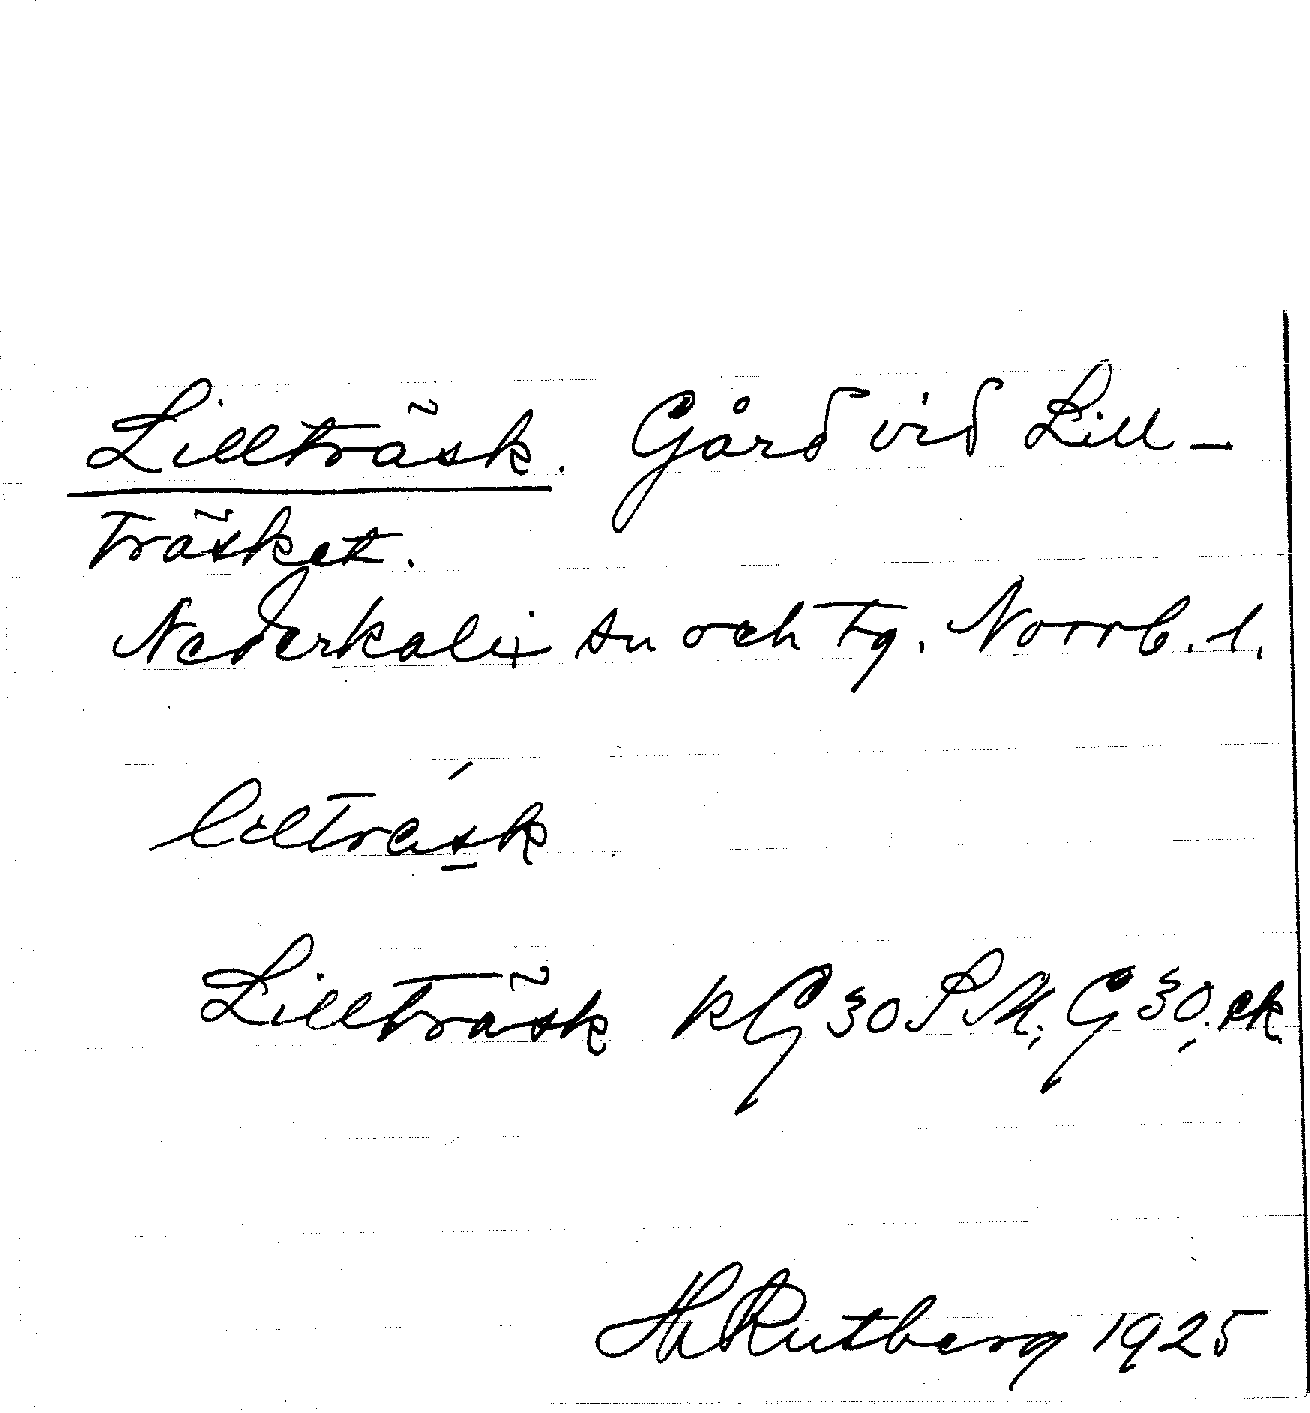 Lillträsk. Gård vid Lill-
träsket.
Nederkalix sn och tg. Norrb. l.
lilträsk
Lillträsk KG 30 SM; G 30, ek
H Rutberg 1925